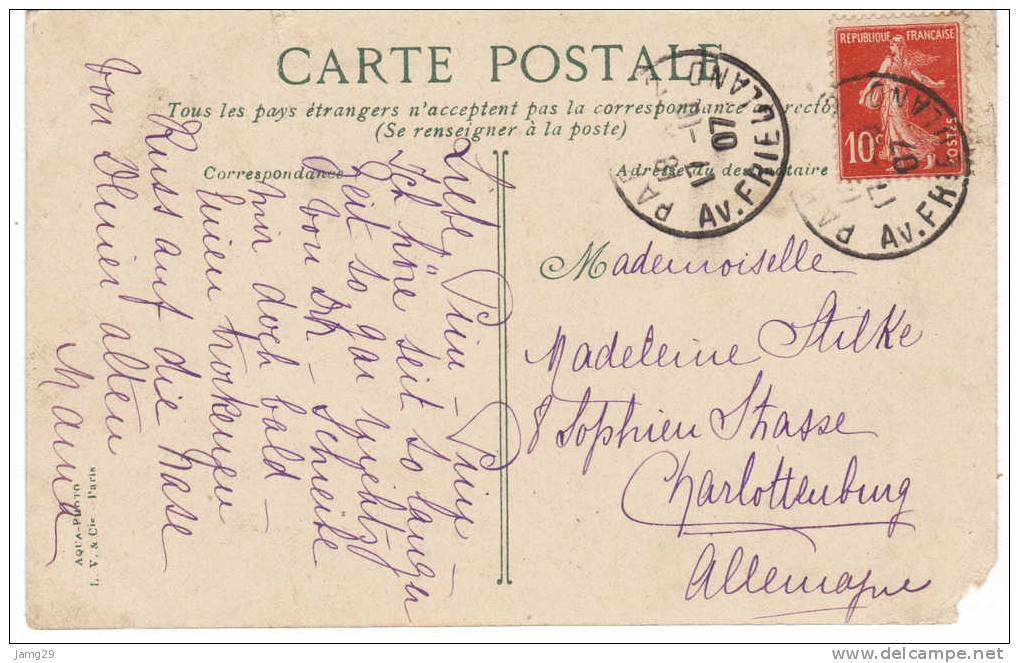 CARTE POSTALE
Tous les pays étrangers n'acceptent pas la correspondance au recto
(Se renseigner à la poste)
Correspondance
Adresse du destinataire
REPUBLIQUE FRANÇAISE
10c
POSTES
PARIS
17 -11
07
Av. FRIEDLAND
PARIS
07
Av. FRIEDLAND
Mademoiselle
Madeleine Stilke
8 Sophien Strasse
Charlottenburg
Allemagne
Liebe Puix – Puix
Ich höre seit so langer
Zeit so gar nichts
von Dir – Schreibe
mir doch bald –
einen trockenen
Kuss auf die Nase
von Deiner alten
Mama
AQUA-PHOTO
L. V. & Cie – Paris
Jamg29
delcampe.net